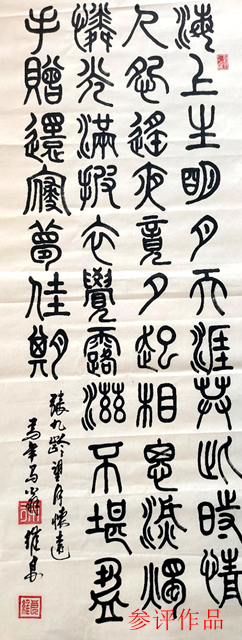 海上生明月天涯共此時情
人怨遙夜竟夕起相思滅燭
憐光滿披衣覺露滋不堪盈
手贈還寢夢佳期
張九齡望月懷遠
参评作品